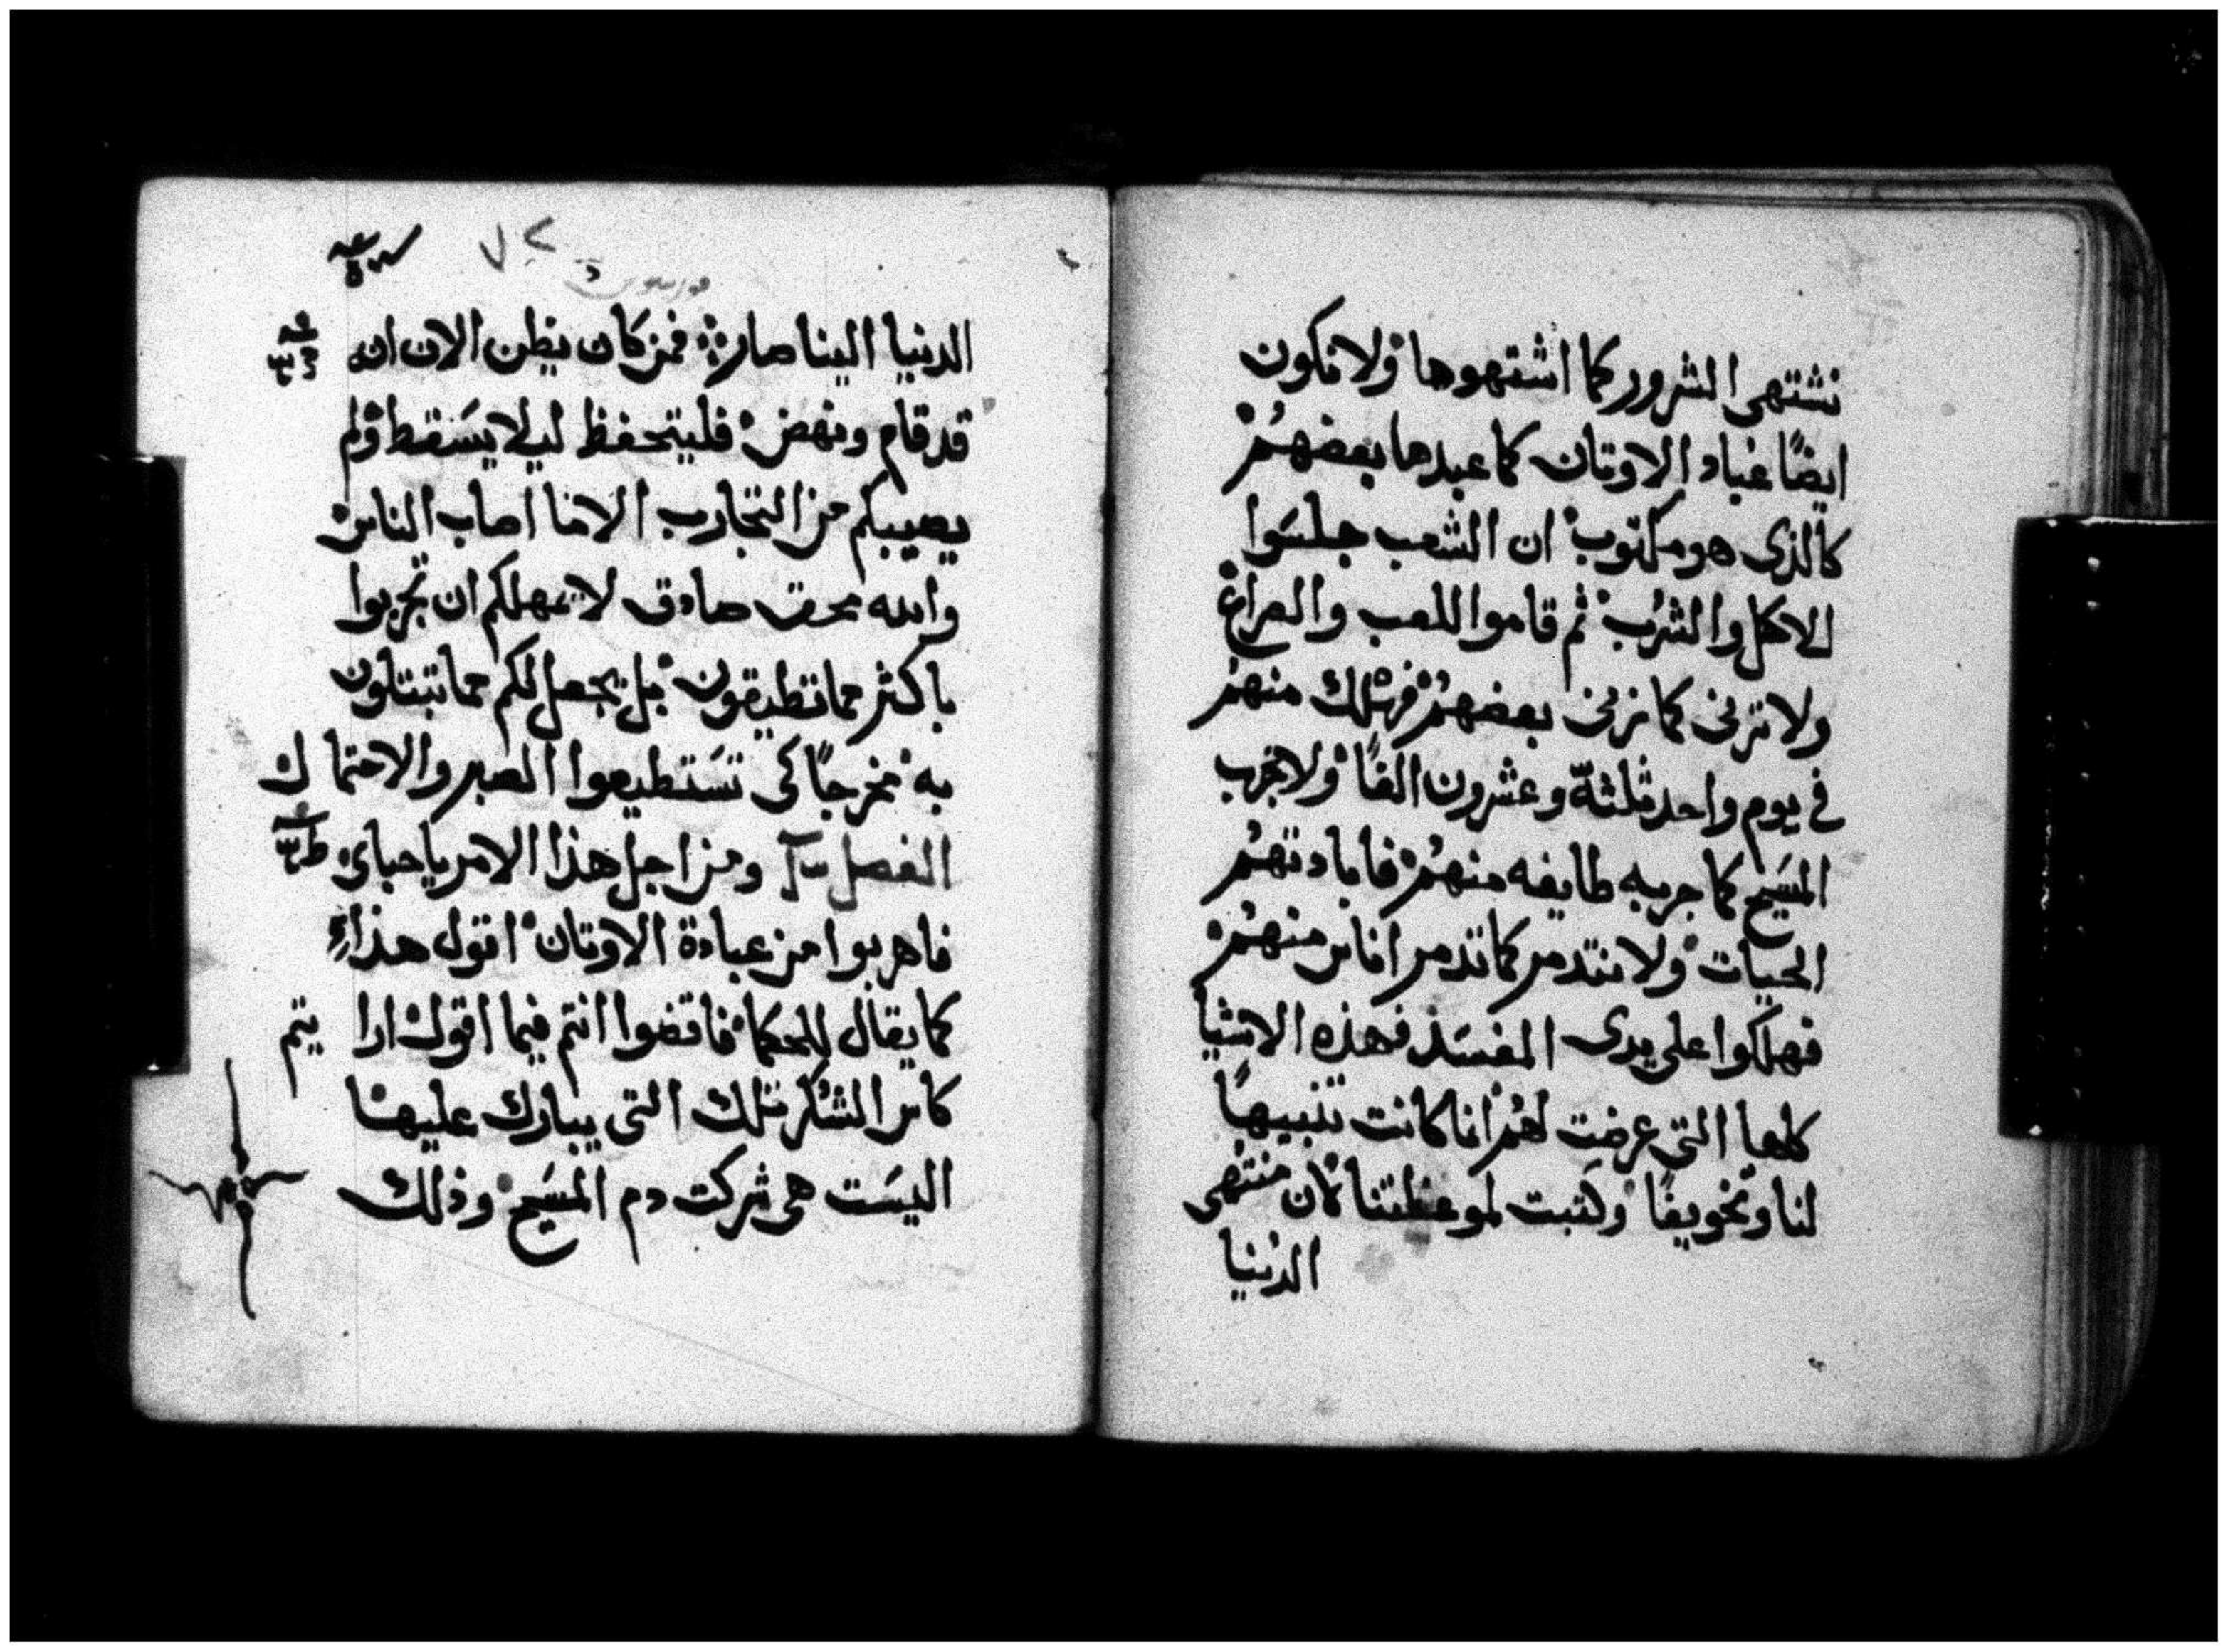 نشتهى الشرور كما اشتهوها ولا نكون
ايضًا عباد الاوتان كما عبدها بعضهم
كالذى هو مكتوب ان الشعب جلسوا
للاكل والشرب ثم قاموا للعب والصراع
ولا نزنى كما زنى بعضهم فهلك منهم
فى يوم واحد ثلثة وعشرون الفًا ولا نجرب
المسيح كما جربه طايفه منهم فابادتهم
الحيات ولا نتدمر كما تدمر اناس منهم
فهلكوا على يدى المفسد فهذه الاشيا
كلها التى عرضت لهم انما كانت تنبيهًا
لنا وتخويفًا وكتبت لموعظتنا لان منتهى
الدنيا
٧٢
الدنيا الينا صار فمن كان يظن الان انه
قد قام ونهض فليتحفظ ليلا يسقط ولم
يصيبكم من التجارب الا ما اصاب الناس
والله محق صادق لا يمهلكم ان تجربوا
باكثر مما تطيقون بل يجعل لكم مما تبتلون
به مخرجًا كى تستطيعوا الصبر والاحتمال
الفصل ومن اجل هذا الامر يا حباى
فاهربوا من عبادة الاوتان اقول هذا
كما يقال للحكما فاقضوا انتم فيما اقول ارايتم
كاس الشكر تلك التى يبارك عليها
اليست هى شركت دم المسيح وذلك